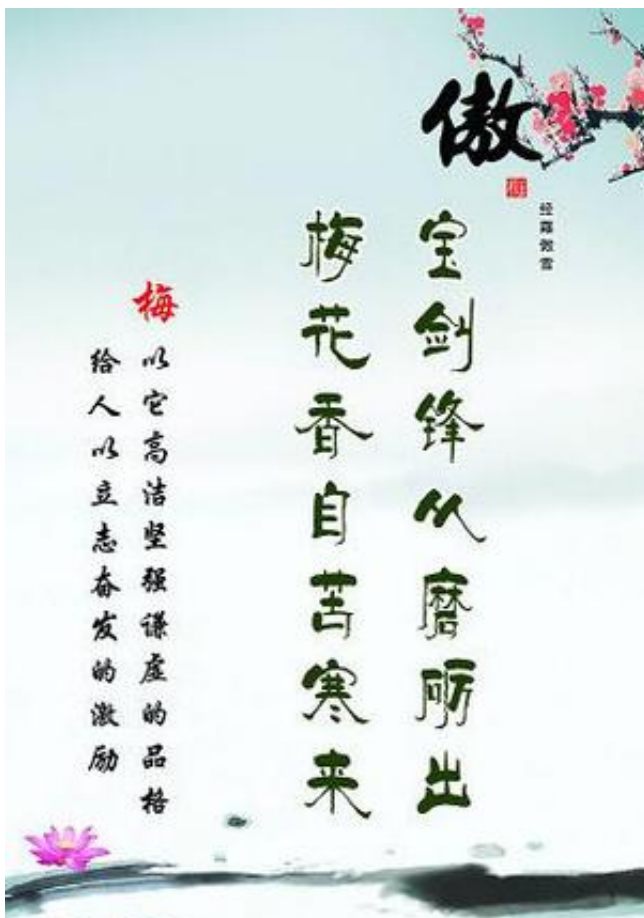 傲
经霜傲雪
宝剑锋从磨砺出
梅花香自苦寒来
梅
以它高洁坚强谦虚的品格
给人以立志奋发的激励